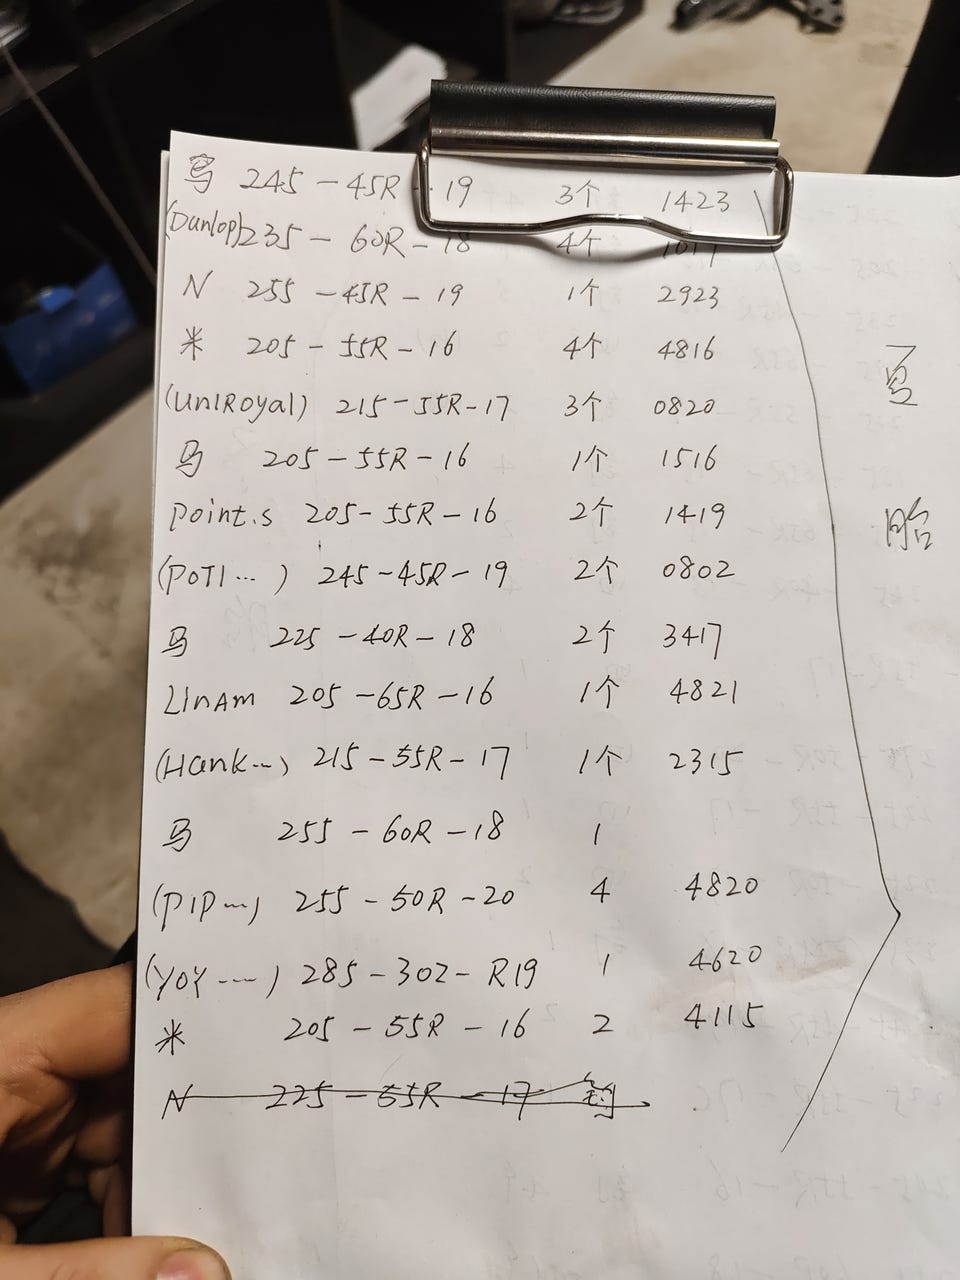 马 245-45R-19 3个 1423
(Dunlop) 235-60R-18 4个
N 255-45R-19 1个 2923
米 205-55R-16 4个 4816
(UnIRoyal) 215-55R-17 3个 0820
马 205-55R-16 1个 1516
Point.s 205-55R-16 2个 1419
(POTI...) 245-45R-19 2个 0802
马 225-40R-18 2个 3417
LInAm 205-65R-16 1个 4821
(Hank...) 215-55R-17 1个 2315
马 255-60R-18 1
(PIP...) 255-50R-20 4 4820
(YOY....) 285-302-R19 1 4620
米 205-55R-16 2 4115
N 225-55R-17
夏
胎